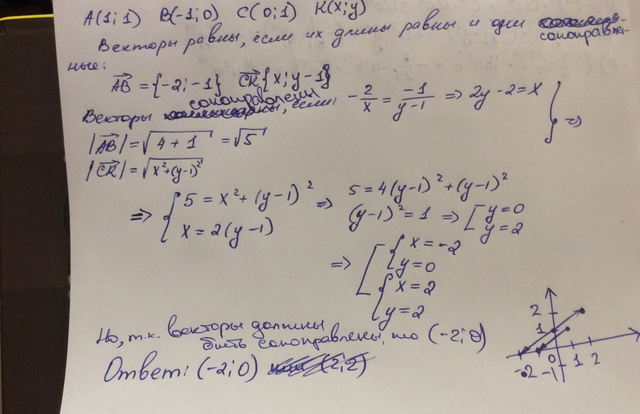 A(1;1) B(-1;0) C(0;1) K(x;y)
Векторы равны, если их длины равны и они сонаправлен-
ные:
AB = {-2;-1} CK{x;y-1}
Векторы сонаправлены, если -2/x = -1/(y-1) => 2y-2=x } =>
|AB| = √(4+1) = √5
|CK| = √(x²+(y-1)²)
=> { 5 = x²+(y-1)² => 5=4(y-1)²+(y-1)²
x=2(y-1) (y-1)²=1 => [ y=0
y=2
=> [ { x=-2
y=0
{ x=2
y=2
Но, т.к. векторы должны
быть сонаправлены, то (-2;0)
Ответ: (-2;0) (2;2)
2
1
-2 0 1 2
-1